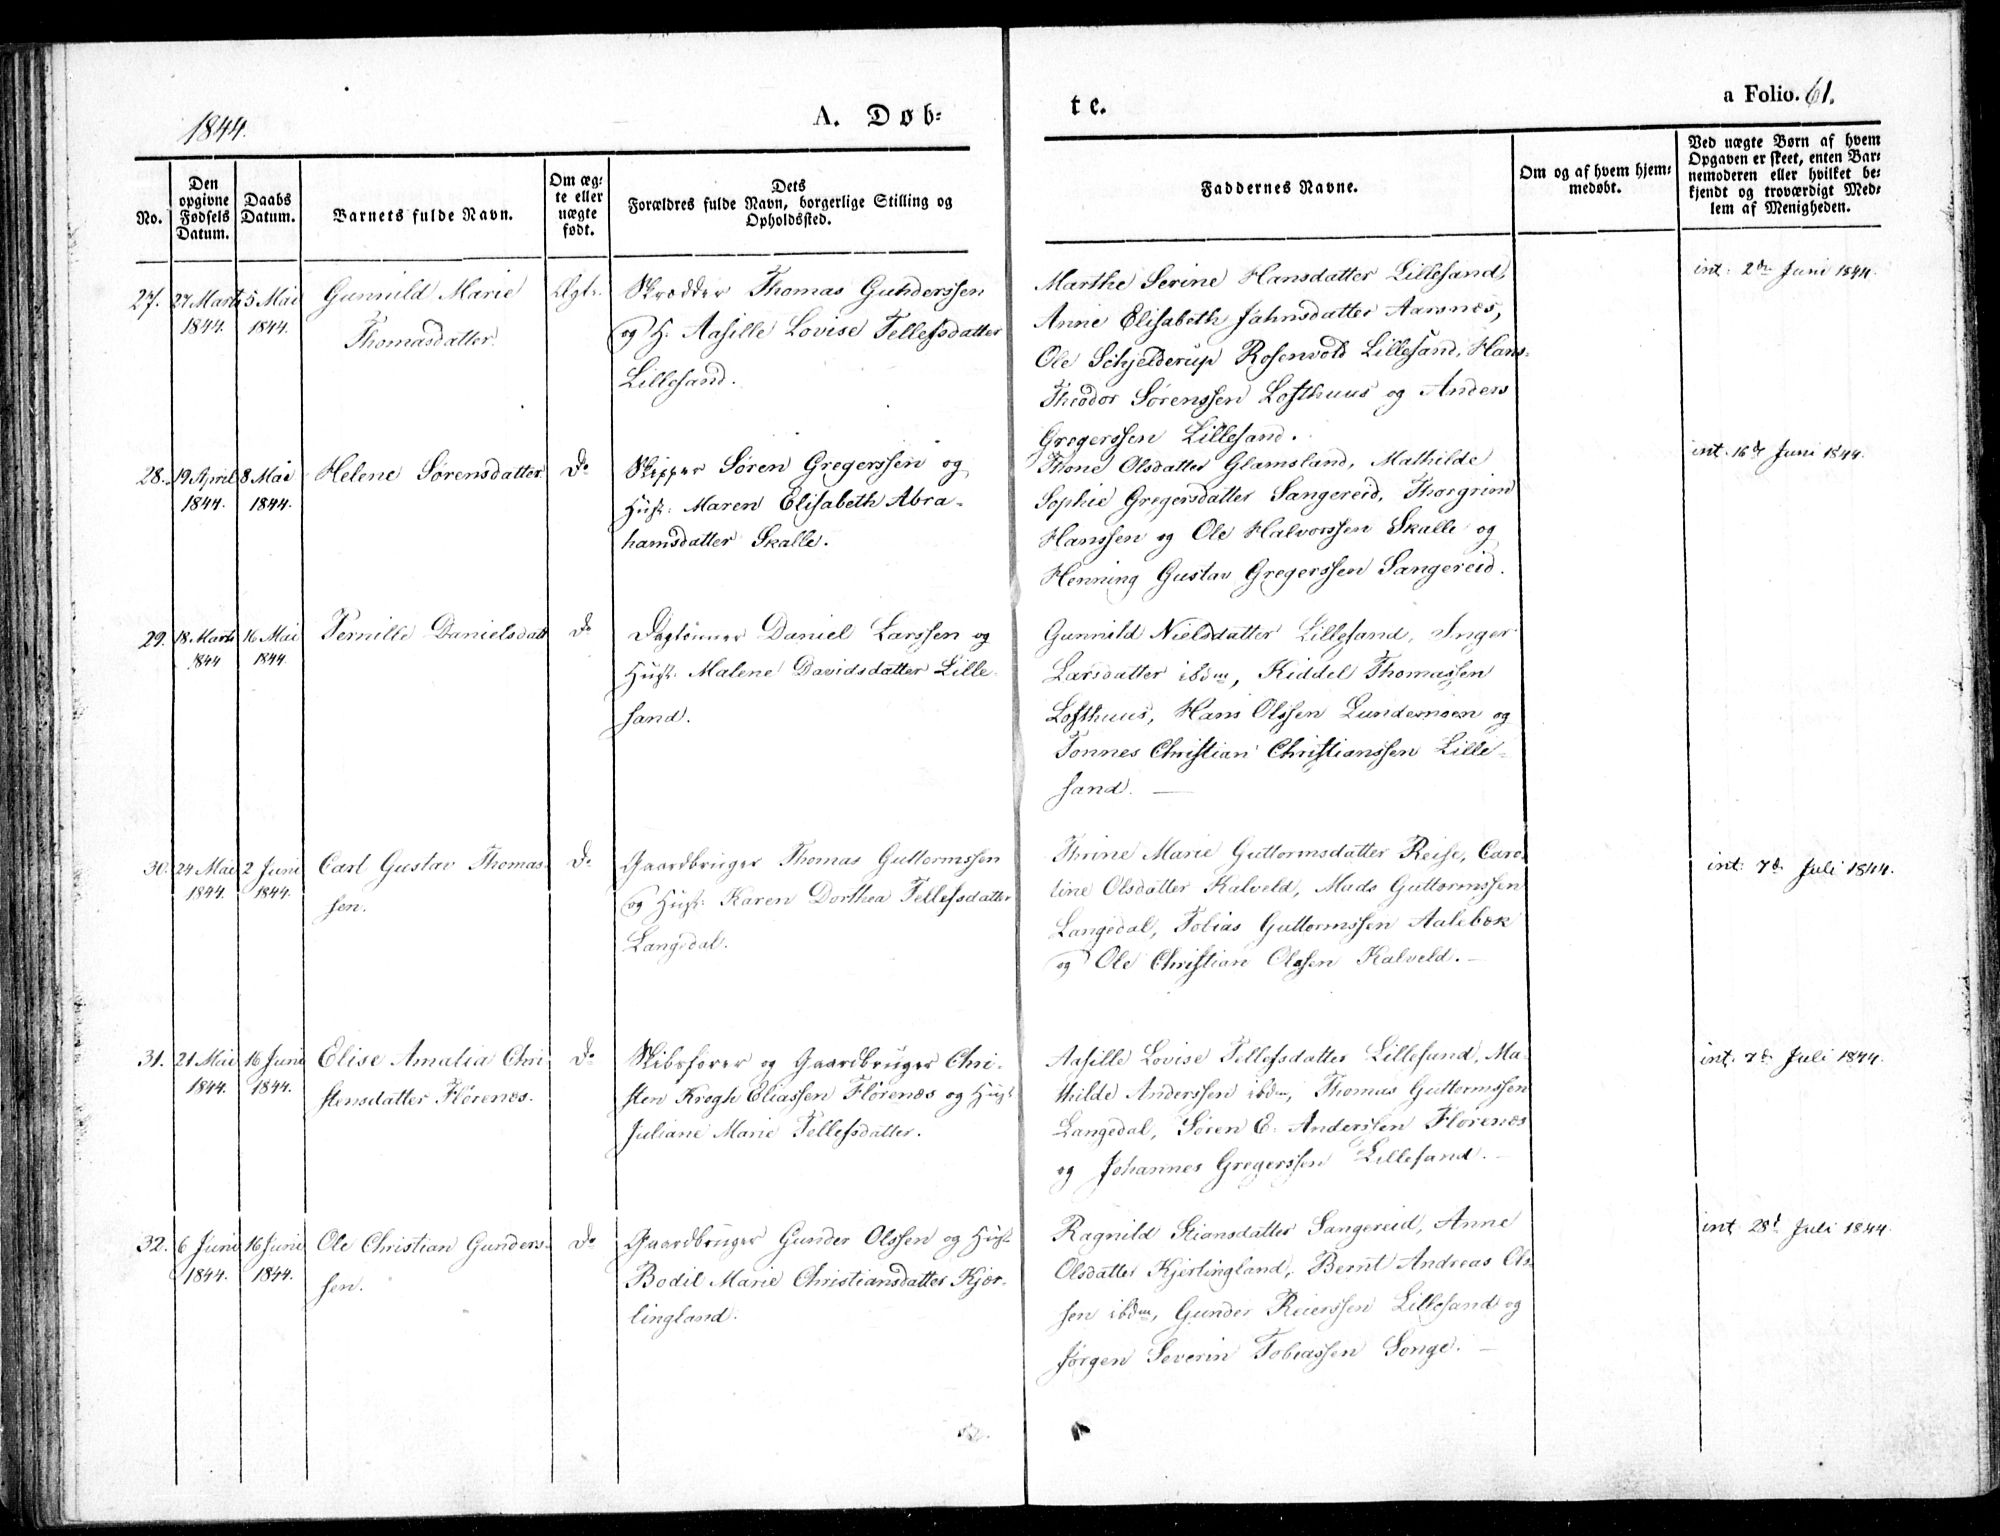 1844.
A. Døb=
te.
a Folio. 61.
No.
Den opgivne Fødsels Datum.
Daabs Datum.
Barnets fulde Navn.
Om æg=
te eller
uægte
født.
Dets
Forældres fulde Navn, borgerlige Stilling og
Opholdssted.
Faddernes Navne.
Om og af hvem hjem=
medøbt.
Ved uægte Børn af hvem
Opgaven er skeet, enten Bar=
nemoderen eller hvilket be=
kjendt og troværdigt Med=
lem af Menigheden.
27. 27 Marts 1844. 5 Mai 1844.
Gunnild Marie
Thomasdatter.
Ægte.
Skrædder Thomas Gunderssen
og H. Aasille Lovise Tellefsdatter
Lillesand.
Marthe Serine Hansdatter Lillesand,
Anne Elisabeth Jahnsdatter Aarsnes,
Ole Schjelderup Rosenvold Lillesand, Hans
Theodor Sørenssen Lofthuus og Anders
Gregerssen Lillesand.
int: 2den Juni 1844.
28. 19 April 1844. 8 Mai 1844.
Helene Sørensdatter
Do
Skipper Søren Gregerssen og
Hust: Maren Elisabeth Abra=
hamsdatter Skalle.
Thone Olsdatter Glamsland, Mathilde
Sophie Gregersdatter Sangereid, Thorgrim
Hanssen og Ole Halvorssen Skalle og
Henning Gustav Gregerssen Sangereid.
int: 16de Juni 1844.
29. 18 Marts 1844 16 Mai 1844.
Pernille Danielsdatt
Do
Daglønner Daniel Larssen og
Hust: Malene Davidsdatter Lille=
sand.
Gunnild Nielsdatter Lillesand, Inger
Larsdatter ibdm, Kiddel Thomassen
Lofthuus, Hans Olssen Lundemoen og
Tønnes Christian Christianssen Lille=
sand. —
30. 24 Mai 1844. 2 Juni 1844.
Carl Gustav Thomas=
sen.
Do
Gaardbruger Thomas Guttormssen
og Hust: Karen Dorthea Tellefsdatter
Langedal.
Thrine Marie Guttormsdatter Reise, Caro=
line Olsdatter Kalveld, Mads Guttormssen
Langedal, Tobias Guttormssen Aalebæk
og Ole Christian Olssen Kalveld. —
int: 7de Juli 1844.
31. 21 Mai 1844. 16 Juni 1844.
Elise Amalia Chri=
stensdatter Flørenæs.
Do
Skibsfører og Gaardbruger Chri=
sten Krogh Eliassen Flørenæs og Hust
Juliane Marie Tellefsdatter.
Aasille Lovise Tellefsdatter Lillesand, Ma=
thilde Anderssen ibdm, Thomas Guttormssen
Langedal, Søren E. Anderssen Flørenæs
og Johannes Gregerssen Lillesand. —
int: 7de Juli 1844.
32. 6 Juni 1844. 16 Juni 1844.
Ole Christian Gunders=
sen.
Do
Gaardbruger Gunder Olssen og Hust
Bodil Marie Christiansdatter Kjør=
lingland.
Ragnild Stiansdatter Sangereid, Anne
Olsdatter Kjørlingland, Bernt Andreas Ols=
sen ibdm, Gunder Reierssen Lillesand og
Jørgen Severin Tobiassen Songe. —
int: 28d Juli 1844.